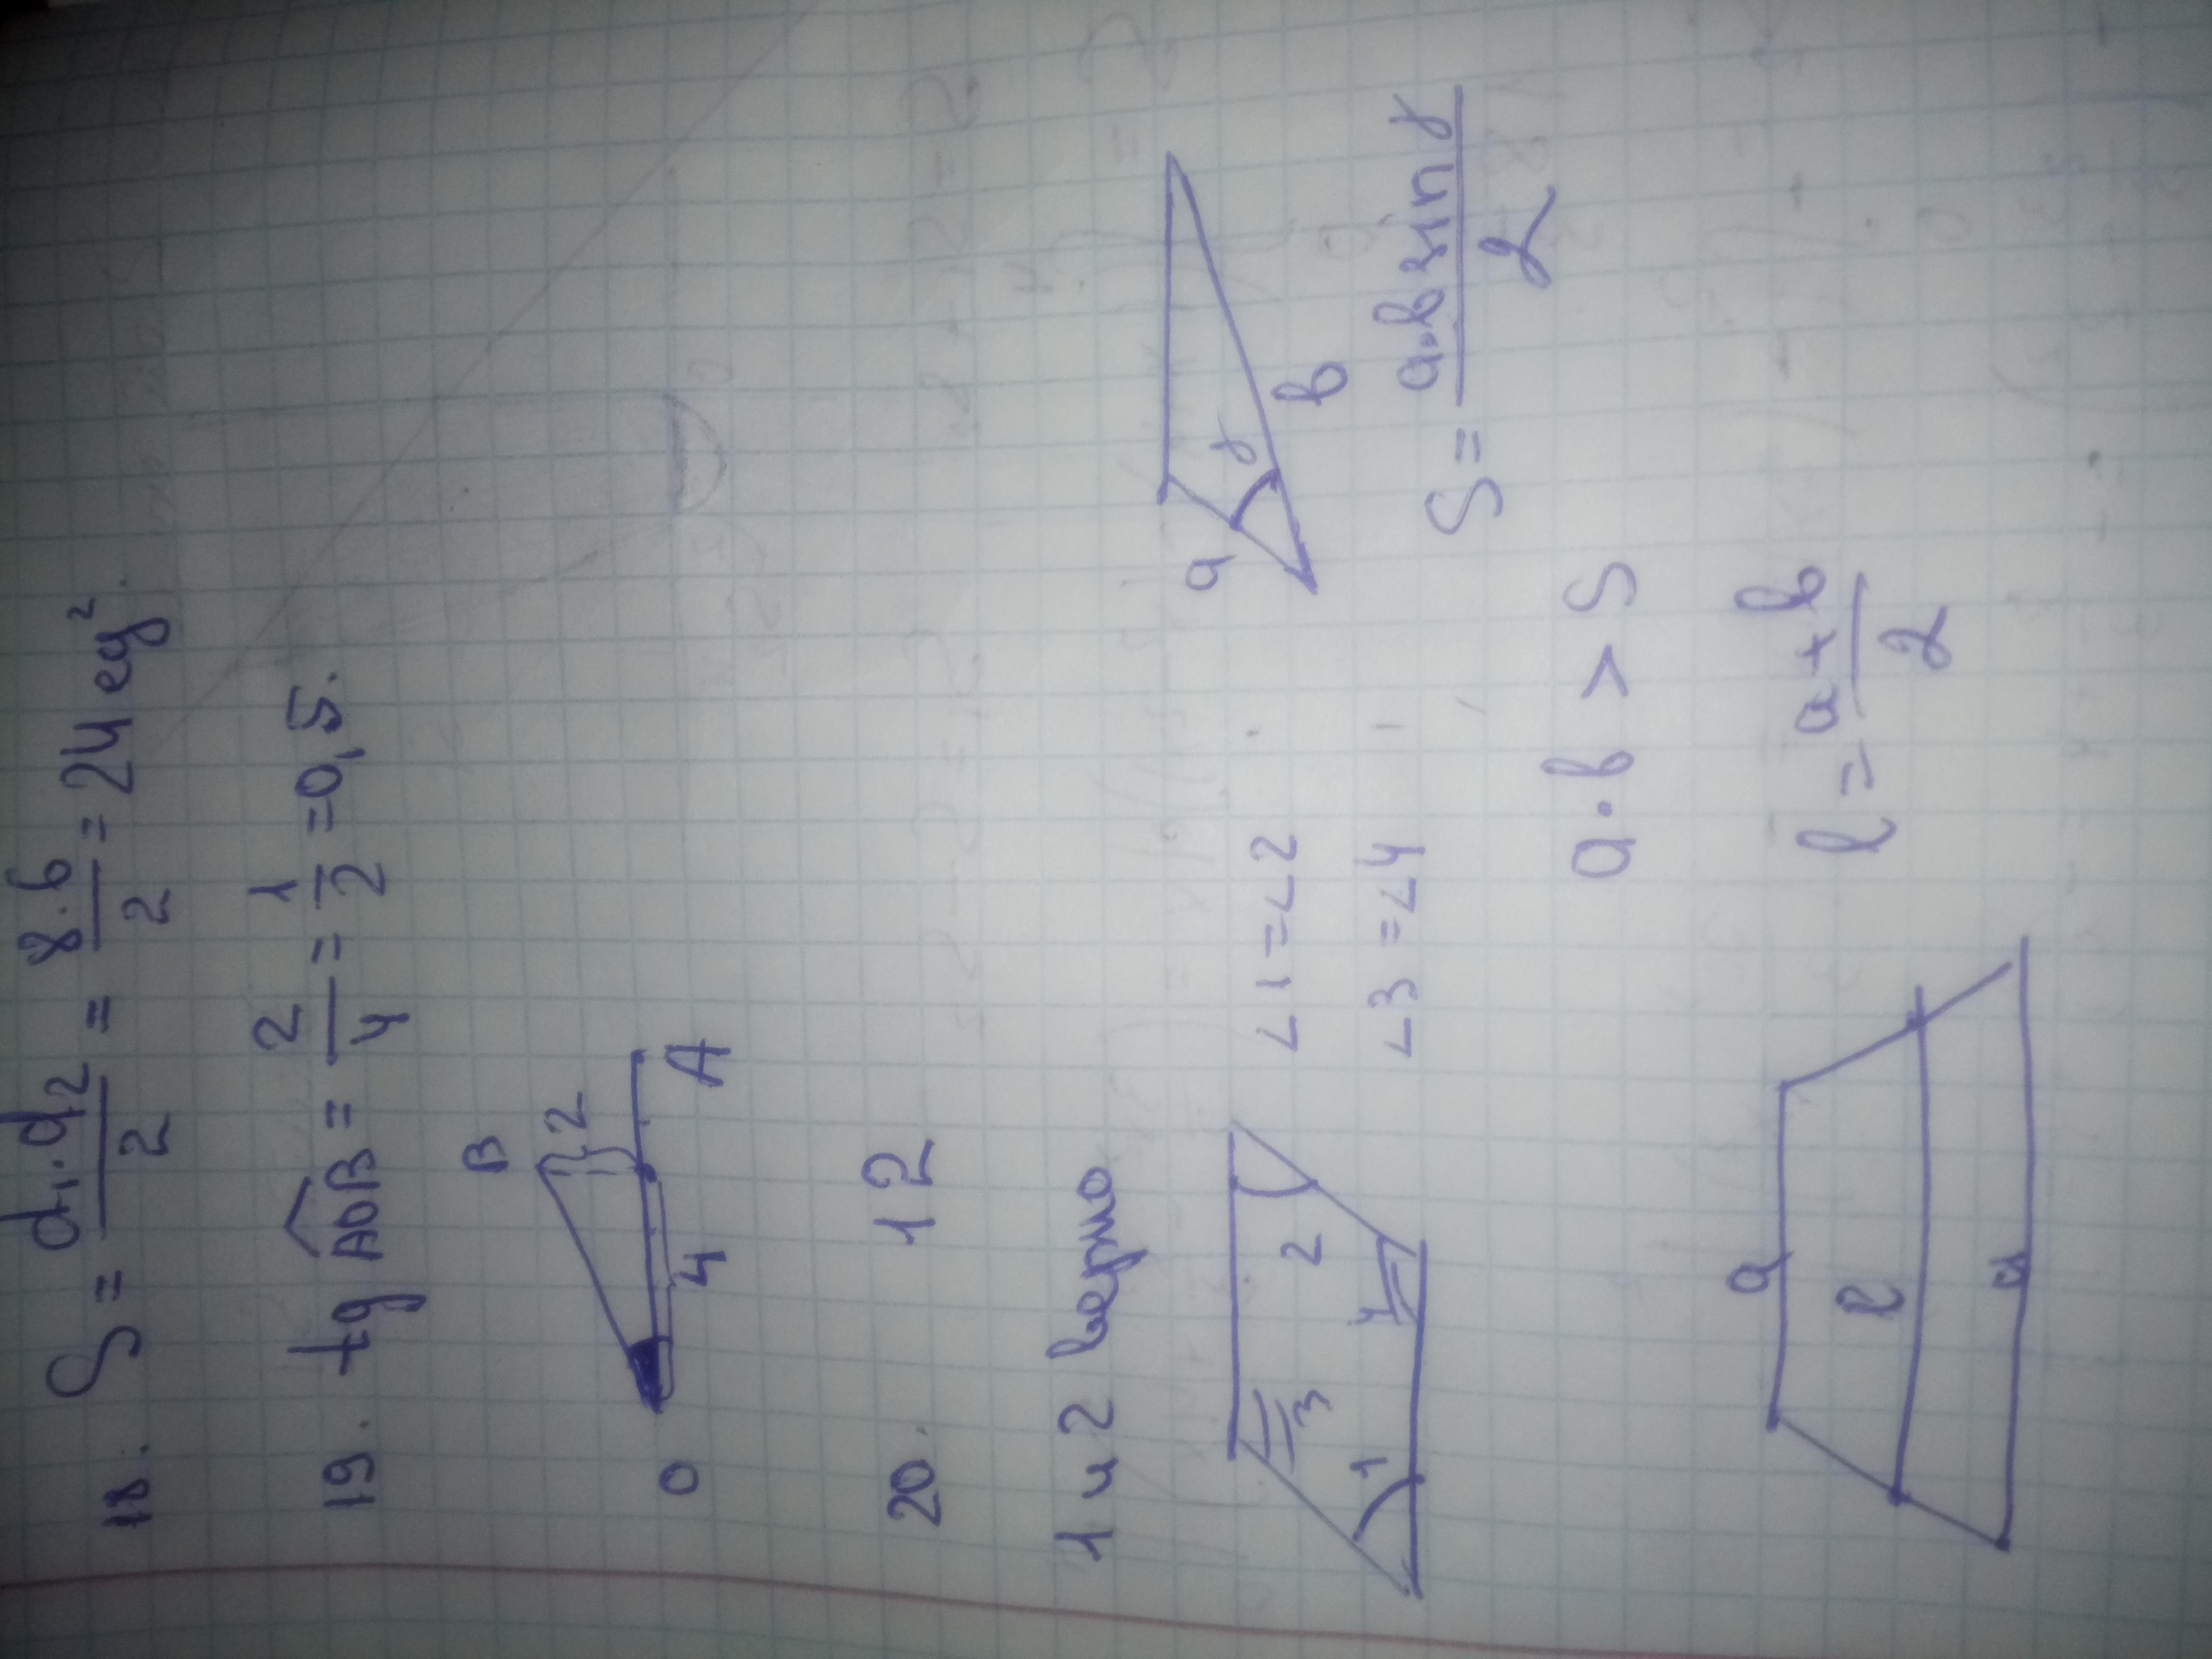 18. S = d₁·d₂/2 = 8·6/2 = 24 ед².
19. tg AOB = 2/4 = 1/2 = 0,5.
B
2
O
4
A
20. 12
1 и 2 верно
3
2
1
4
∠1 = ∠2
∠3 = ∠4
a
γ
b
S = a·b sin γ/2
a·b > S
a
l
l = a+b/2